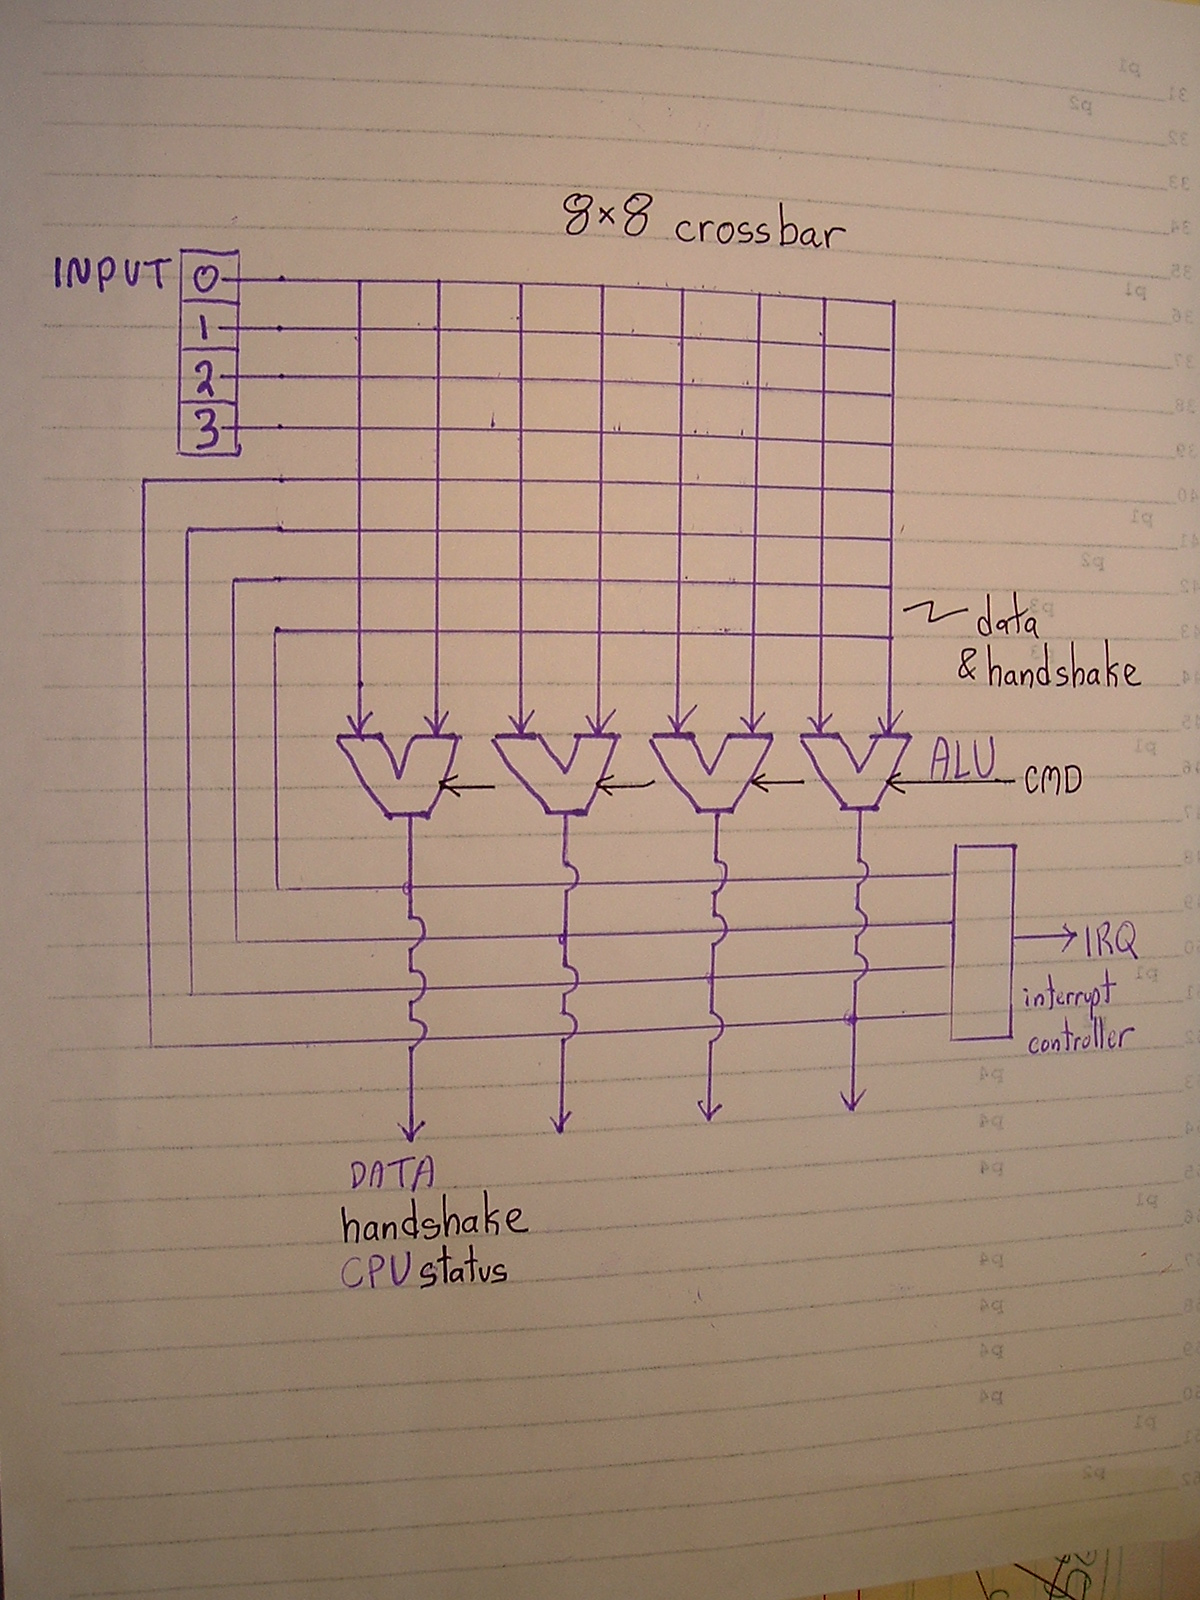 8×8 crossbar
INPUT 0
1
2
3
data
& handshake
ALU
CMD
IRQ
interrupt
controller
DATA
handshake
CPU status